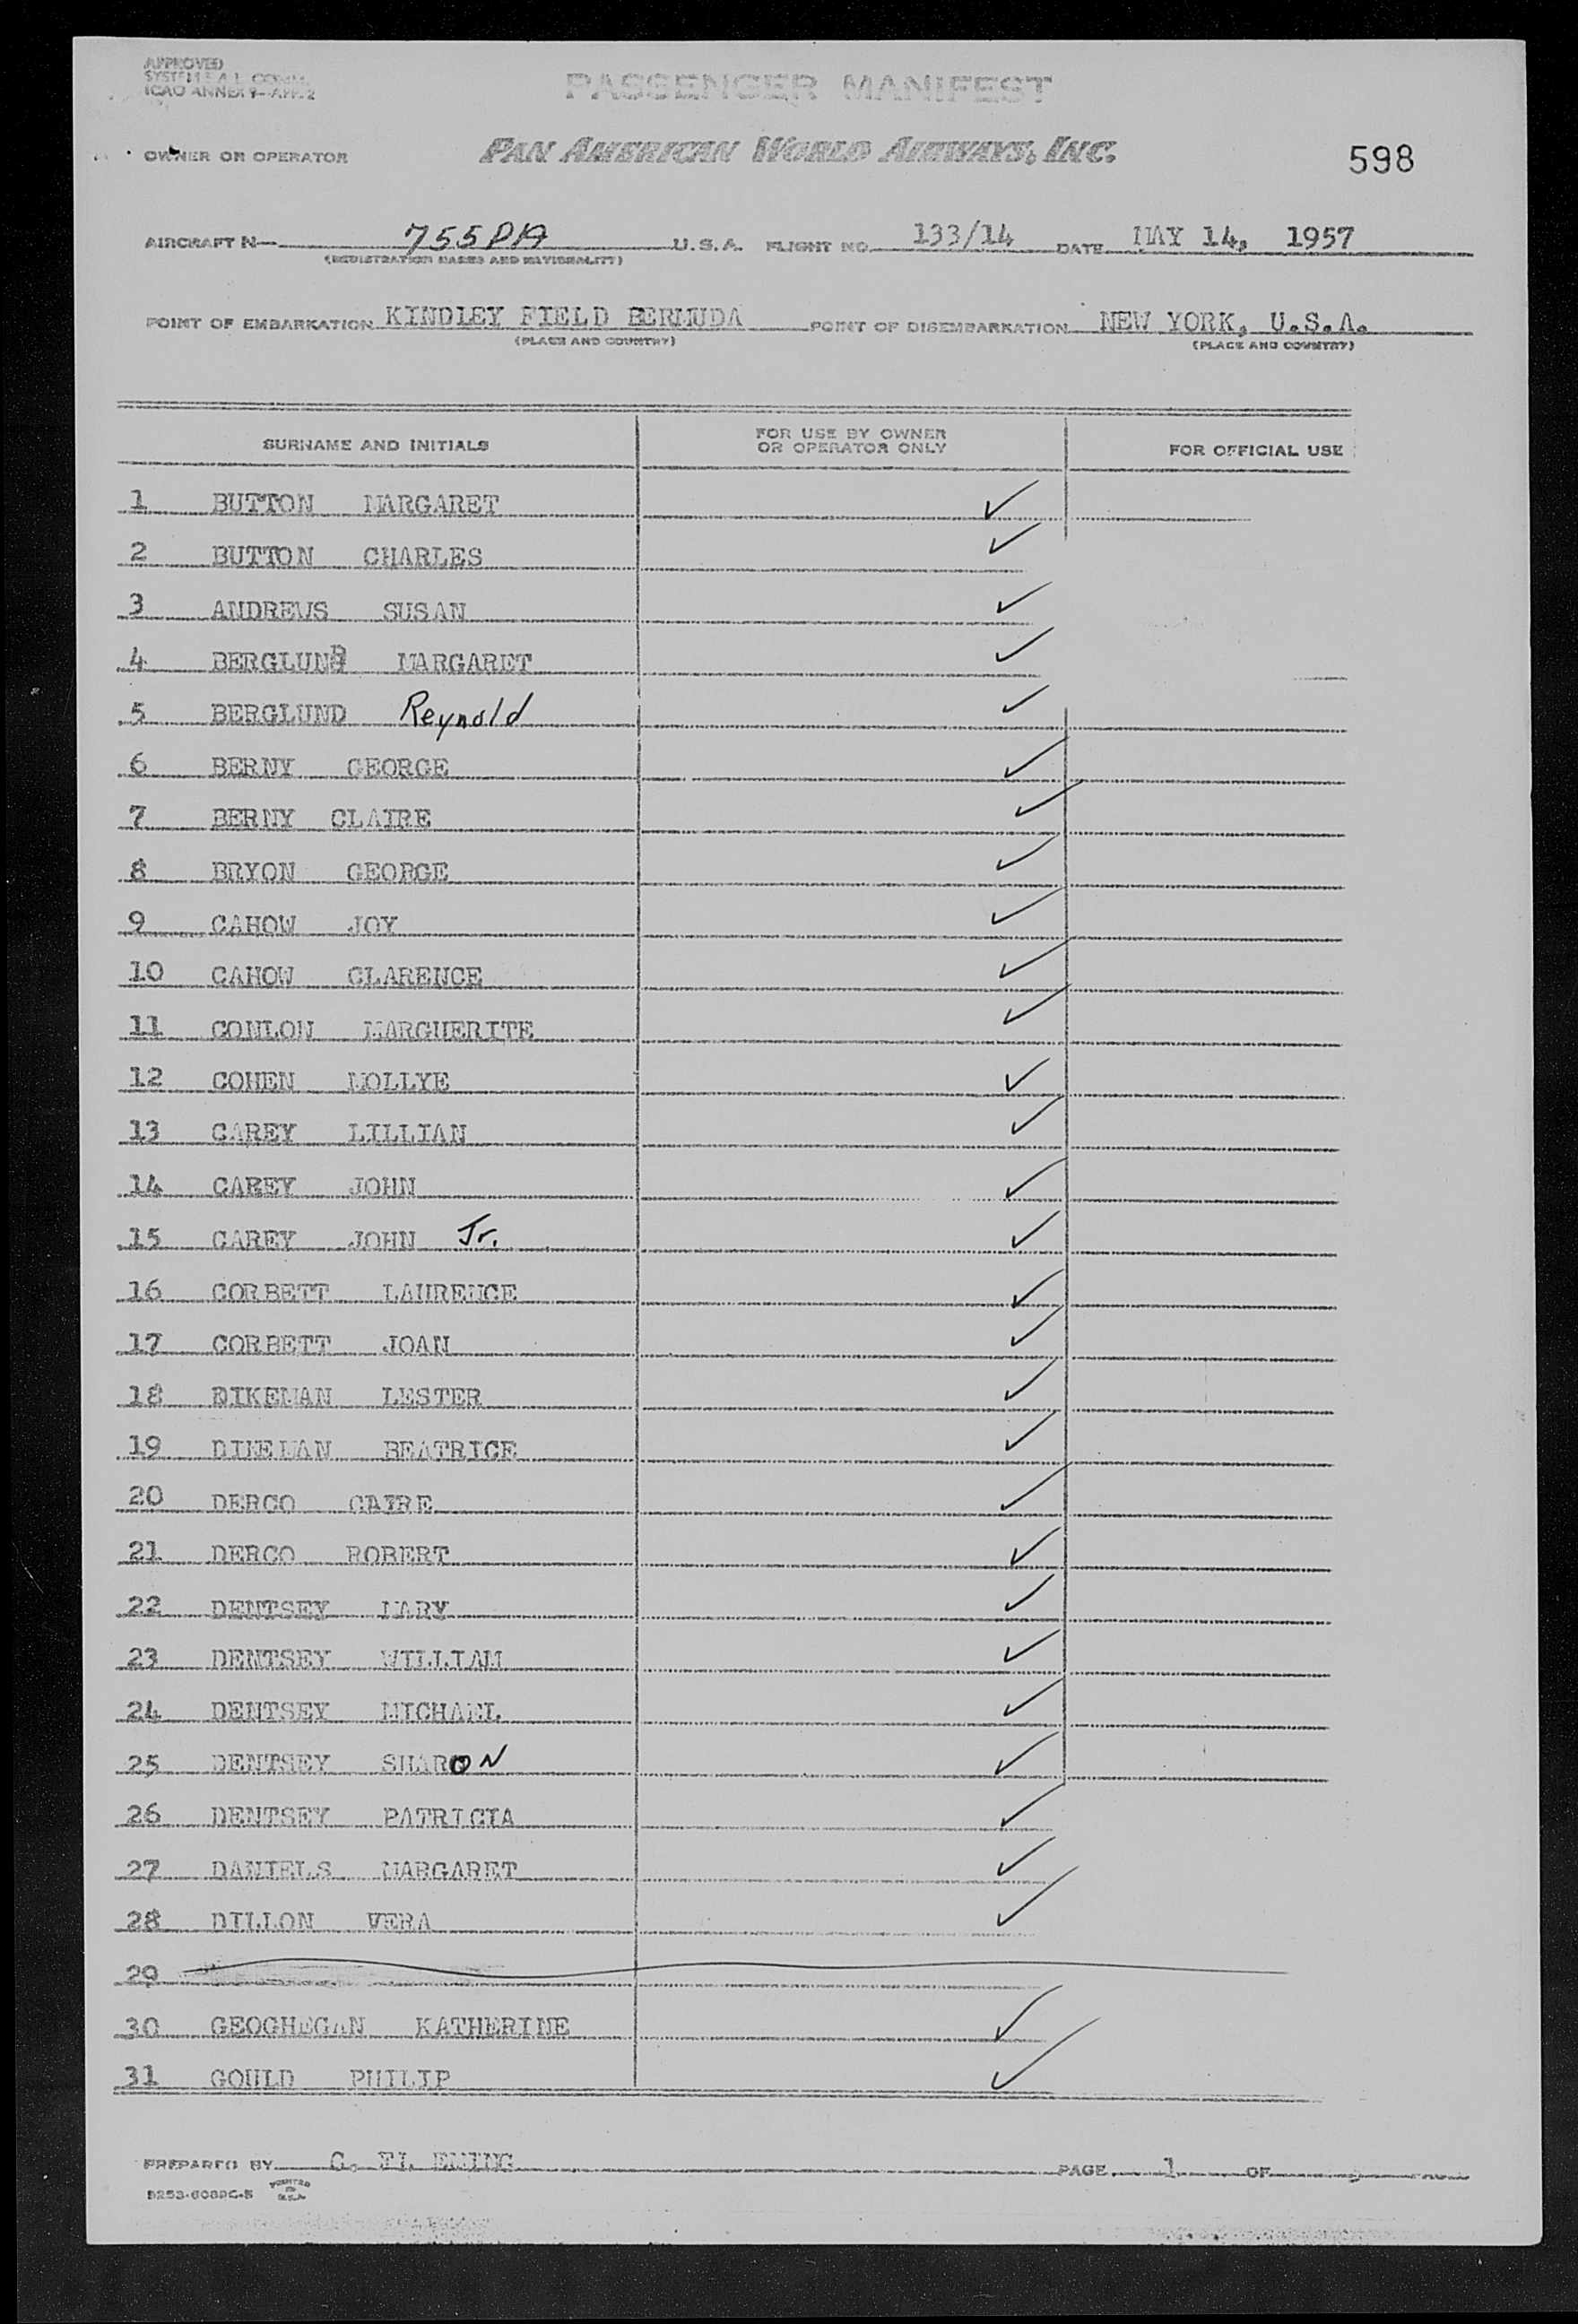 APPROVED
SYSTEM F.A.L. COMM.
ICAO ANNEX 9—APP. 2
PASSENGER MANIFEST
OWNER OR OPERATOR PAN AMERICAN WORLD AIRWAYS, INC. 598
AIRCRAFT N— 755PA U.S.A. FLIGHT NO. 133/14 DATE MAY 14, 1957
(REGISTRATION MARKS AND NATIONALITY)
POINT OF EMBARKATION KINDLEY FIELD BERMUDA POINT OF DISEMBARKATION NEW YORK, U.S.A.
(PLACE AND COUNTRY) (PLACE AND COUNTRY)
SURNAME AND INITIALS FOR USE BY OWNER OR OPERATOR ONLY FOR OFFICIAL USE
1 BUTTON MARGARET ✓
2 BUTTON CHARLES ✓
3 ANDREWS SUSAN ✓
4 BERGLUND MARGARET ✓
5 BERGLUND Reynold ✓
6 BERNY GEORGE ✓
7 BERNY CLAIRE ✓
8 BRYON GEORGE ✓
9 CAHOW JOY ✓
10 CAHOW CLARENCE ✓
11 CONLON MARGUERITE ✓
12 COHEN MOLLYE ✓
13 CAREY LILLIAN ✓
14 CAREY JOHN ✓
15 CAREY JOHN Jr. ✓
16 CORBETT LAURENCE ✓
17 CORBETT JOAN ✓
18 DIKEMAN LESTER ✓
19 DIKEMAN BEATRICE ✓
20 DERCO CAIRE ✓
21 DERCO ROBERT ✓
22 DENTSEY MARY ✓
23 DENTSEY WILLIAM ✓
24 DENTSEY MICHAEL ✓
25 DENTSEY SHARON ✓
26 DENTSEY PATRICIA ✓
27 DANIELS MARGARET ✓
28 DILLON VERA ✓
29
30 GEOGHEGAN KATHERINE ✓
31 GOULD PHILIP ✓
PREPARED BY G. FLEMING PAGE 1 OF
PRINTED IN U.S.A.